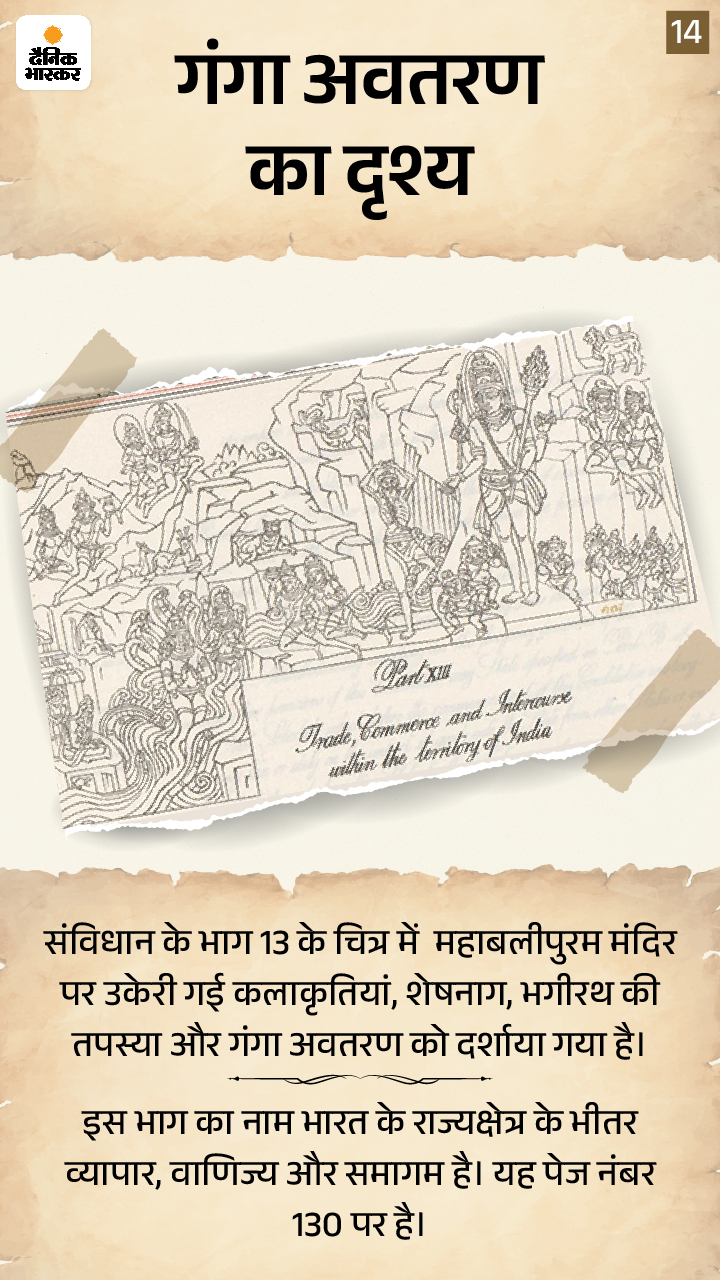 दैनिक
भास्कर
14
गंगा अवतरण
का दृश्य
Part XIII
Trade, Commerce and Intercourse
within the territory of India
संविधान के भाग 13 के चित्र में महाबलीपुरम मंदिर
पर उकेरी गई कलाकृतियां, शेषनाग, भगीरथ की
तपस्या और गंगा अवतरण को दर्शाया गया है।
इस भाग का नाम भारत के राज्यक्षेत्र के भीतर
व्यापार, वाणिज्य और समागम है। यह पेज नंबर
130 पर है।